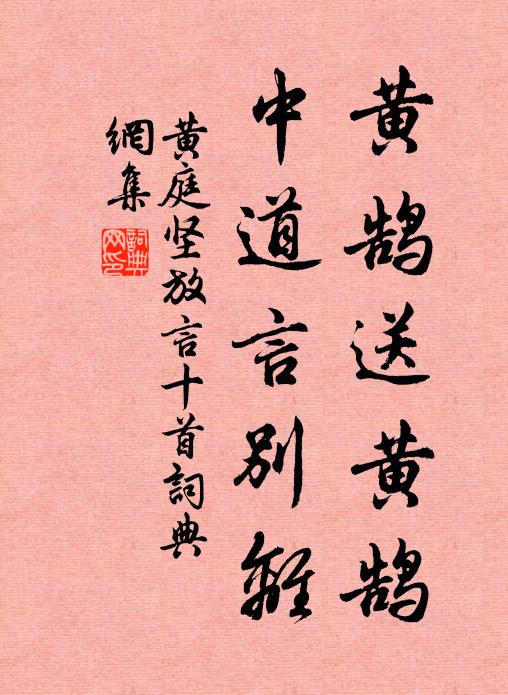 黄鹄送黄鹄
中道言别離
黄庭坚放言十首詞典
網集
詞典网印